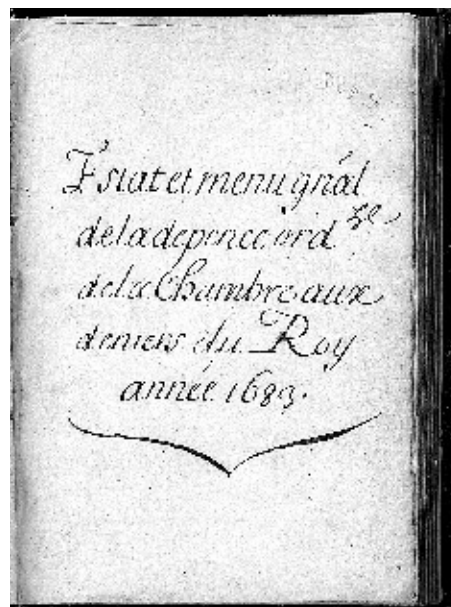 Estat et menu gñal
de la depence ord.re
de la Chambre aux
deniers du Roy
année 1683.